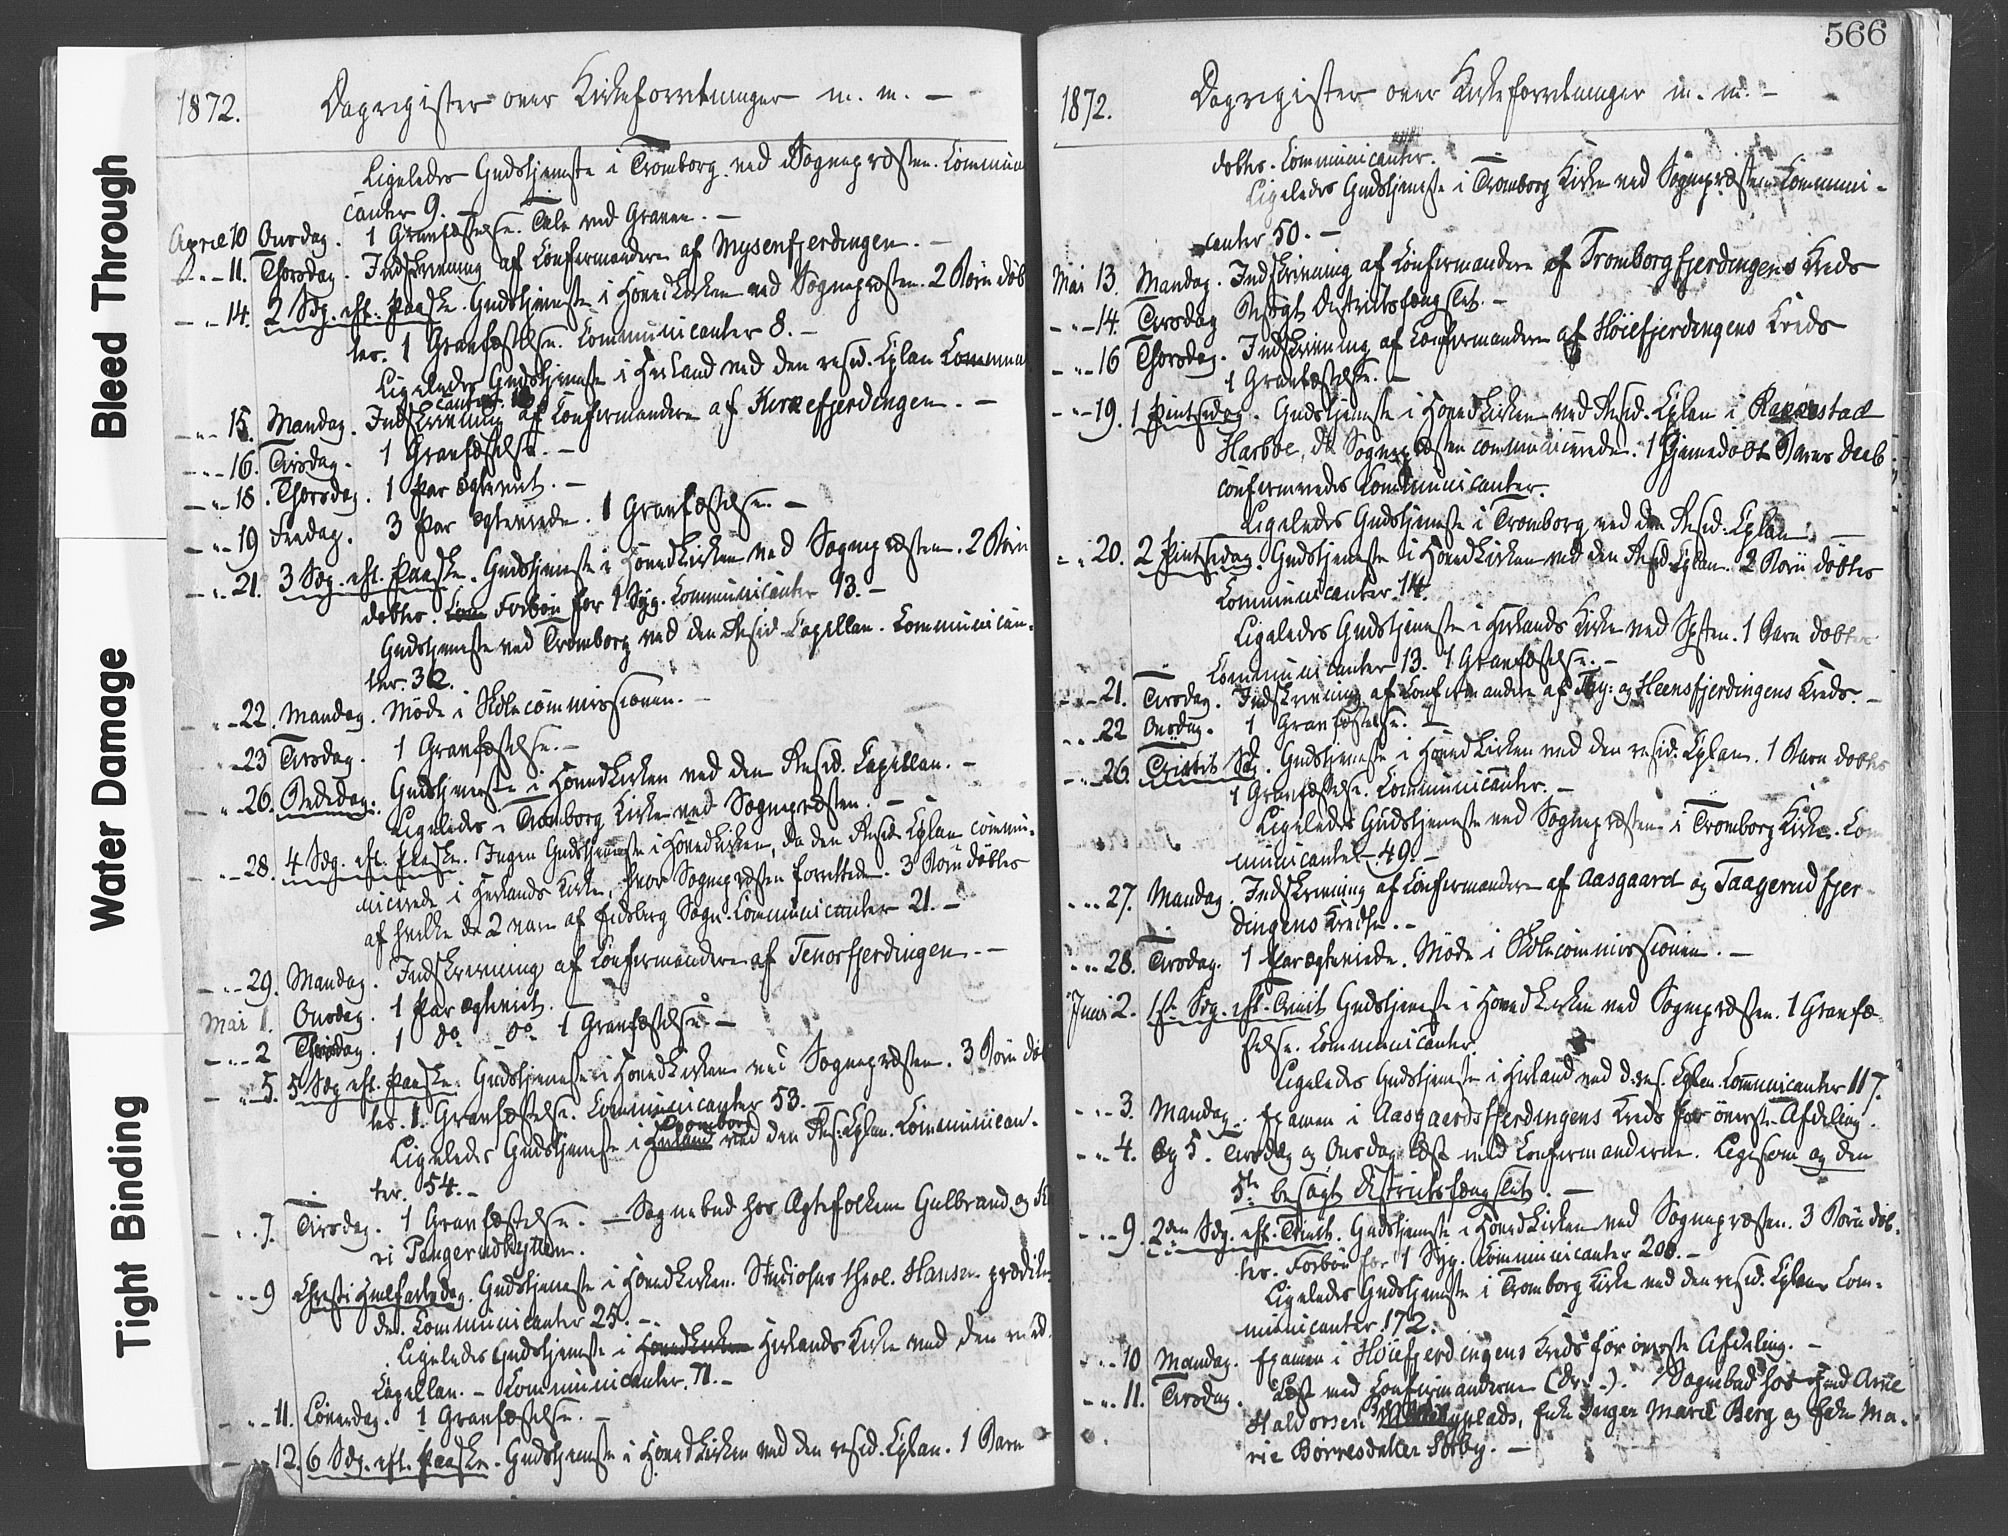 Bleed Through
Water Damage
Tight Binding
1872. Dagregister over Kirkeforretninger m. m. —
Ligeledes Gudstjeneste i Tromborg ved Sognepræsten. Communi
canter 9. —
April 10 Onsdag. 1 Gravfæstelse. Tale ved Graven. —
" - 11. Thorsdag. Indskrivning af Confirmander af Mysenfjerdingen. —
— " - 14. 2 Sdg. eft. Paaske. Gudstjeneste i Hovedkirken ved Sognepræsten. 2 Børn døb
tes. 1 Gravfæstelse. Communicanter 8. —
Ligeledes Gudstjeneste i Herland ved den resid. Cplan Commun
canter
— " - 15. Mandag. Indskrivning af Confirmander af Kirkefjerdingen. —
— " - 16. Tirsdag. 1 Gravfæstelse. —
— " - 18. Thorsdag. 1 Par Ægteviet. —
— " - 19 Fredag. 3 Par Ægteviede. 1 Gravfæstelse. —
— " - 21. 3 Sdg. eft. Paaske. Gudstjeneste i Hovedkirken ved Sognepræsten. 2 Børn
døbtes. Com Forbøn for 1 Syg. Communicanter 93. —
Gudstjeneste ved Tromborg ved den Resid. Capellan. Communican-
ter. 32.
— " - 22. Mandag. Møde i Skolecommissionen. —
23 Tirsdag. 1 Gravfæstelse. —
- " 26. Bededag. Gudstjeneste i Hovedkirken ved den Resid. Capellan. —
Ligeledes i Tromborg Kirke ved Sognepræsten. —
- " - 28. 4 Sdg. eft. Paaske. Ingen Gudstjeneste i Hovedkirken, da den Resid. Cplan commu-
nicerede i Herlands Kirke, hvor Sognepræsten forrettede. 3 Børn døbtes
af hvilke de 2 vare af Eidsberg Sogn. Communicanter 21. —
— " - 29. Mandag. Indskrivning af Confirmander af Tenorfjerdingen. —
Mai 1. Onsdag. 1 Par ægteviet. —
— " - 2 Thorsdag. 1 do do 1 Gravfæstelse. —
— " 5. 5 Sdg. eft. Paaske. Gudstjeneste i Hovedkirken ved Sognepræsten. 3 Børn døb
tes. 1. Gravfæstelse. Communicanter 53. —
Tromborg
Ligeledes Gudstjeneste i Herland ved den Res. Cplan. Communican-
ter. 54. —
- " 7. Tirsdag. 1 Gravfæstelse. — Sognebud hos Ægtefolkene Gulbrand og
ri Pengerudhytten.
- " - 9 Christi Himmelfartsdag. Gudstjeneste i Hovedkirken. Studiosus theol. Hansen prædike
de. Communicanter 25. —
Ligeledes Gudstjeneste i Hovedkirken Herlands Kirke ved den resid.
Capellan. — Communicanter. 71. —
- " - 11. Løverdag. 1 Gravfæstelse. —
- " - 12. 6 Sdg. eft. Paaske. Gudstjeneste i Hovedkirken ved den resid. Cplan. 1 Barn
566
1872. Dagregister over Kirkeforretninger m. m. —
døbtes. Communicanter.
Ligeledes Gudstjeneste i Tromborg Kirke ved Sognepræsten Communi-
canter 50. —
Mai 13. Mandag. Indskrivning af Confirmander af Tromborgfjerdingens Kreds
— " - 14. Tirsdag Besøgt Districtsfængslet. —
— " - 16 Thorsdag. Indskrivning af Confirmander af Høiefjerdingens Kreds
1 Gravfæstelse. —
- " - 19. 1 Pintsedag. Gudstjeneste i Hovedkirken ved Resid. Cplan i Rakkestad
Harboe, da Sognepræsten communicerede. 1 Hjemmedøbt Barns Daab
confirmeredes Communicanter.
Ligeledes Gudstjeneste i Tromborg ved den Resid. Cplan. —
- " 20. 2 Pintsedag. Gudstjeneste i Hovedkirken ved den Resid. Cplan. 2 Børn døbtes
Communicanter. 14.
Ligeledes Gudstjeneste i Herlands Kirke ved Spsten. 1 Barn døbtes
Communicanter 13. 1 Gravfæstelse. —
- " - 21. Tirsdag. Indskrivning af Confirmander af og Heensfjerdingens Kreds. —
- " 22 Onsdag. 1 Gravfæstelse. —
- " - 26. Trinitis Sdg. Gudstjeneste i Hovedkirken ved den resid. Cplan. 1 Barn døbtes
1 Gravfæstelse. Communicanter. —
Ligeledes Gudstjeneste ved Sognepræsten i Tromborg Kirke. Com
municanter 49. —
- " - 27. Mandag. Indskrivning af Confirmander af Aasgaard og Taagerudfjer
dingens Kredse. —
- " - 28. Tirsdag. 1 Par ægteviede. Møde i Skolecommissionen. —
Juni 2. 1ste Sdg. eft. Trinit Gudstjeneste i Hovedkirken ved Sognepræsten. 1 Gravfæ-
stelse. Communicanter.
Ligeledes Gudstjeneste i Herland ved d. res. Cplan. Communicanter 117.
- " - 3. Mandag. Examen i Aasgaardsfjerdingens Kreds for øverste Afdeling.
- " - 4. Og 5. Tirsdag og Onsdag læst med Confirmanderne. Ligesom og den
5te besøgt Districtsfængslet. —
- " - 9. 2den Sdg. eft. Trinit. Gudstjeneste i Hovedkirken ved Sognepræsten. 3 Børn døb-
tes. Forbøn for 1 Syg. Communicanter 200. —
Ligeledes Gudstjeneste i Tromborg Kirke ved den resid. Cplan Com-
municanter 172.
- " - 10 Mandag. Examen i Høiefjerdingens Kreds for øverste Afdeling. —
- " 11. Tirsdag. Læst med Confirmanderne. Sognebud hos Arne
Haldorsen plads, Enke Inger Marie Berg og Enke Ma-
rie Børresdatter Sørby. —